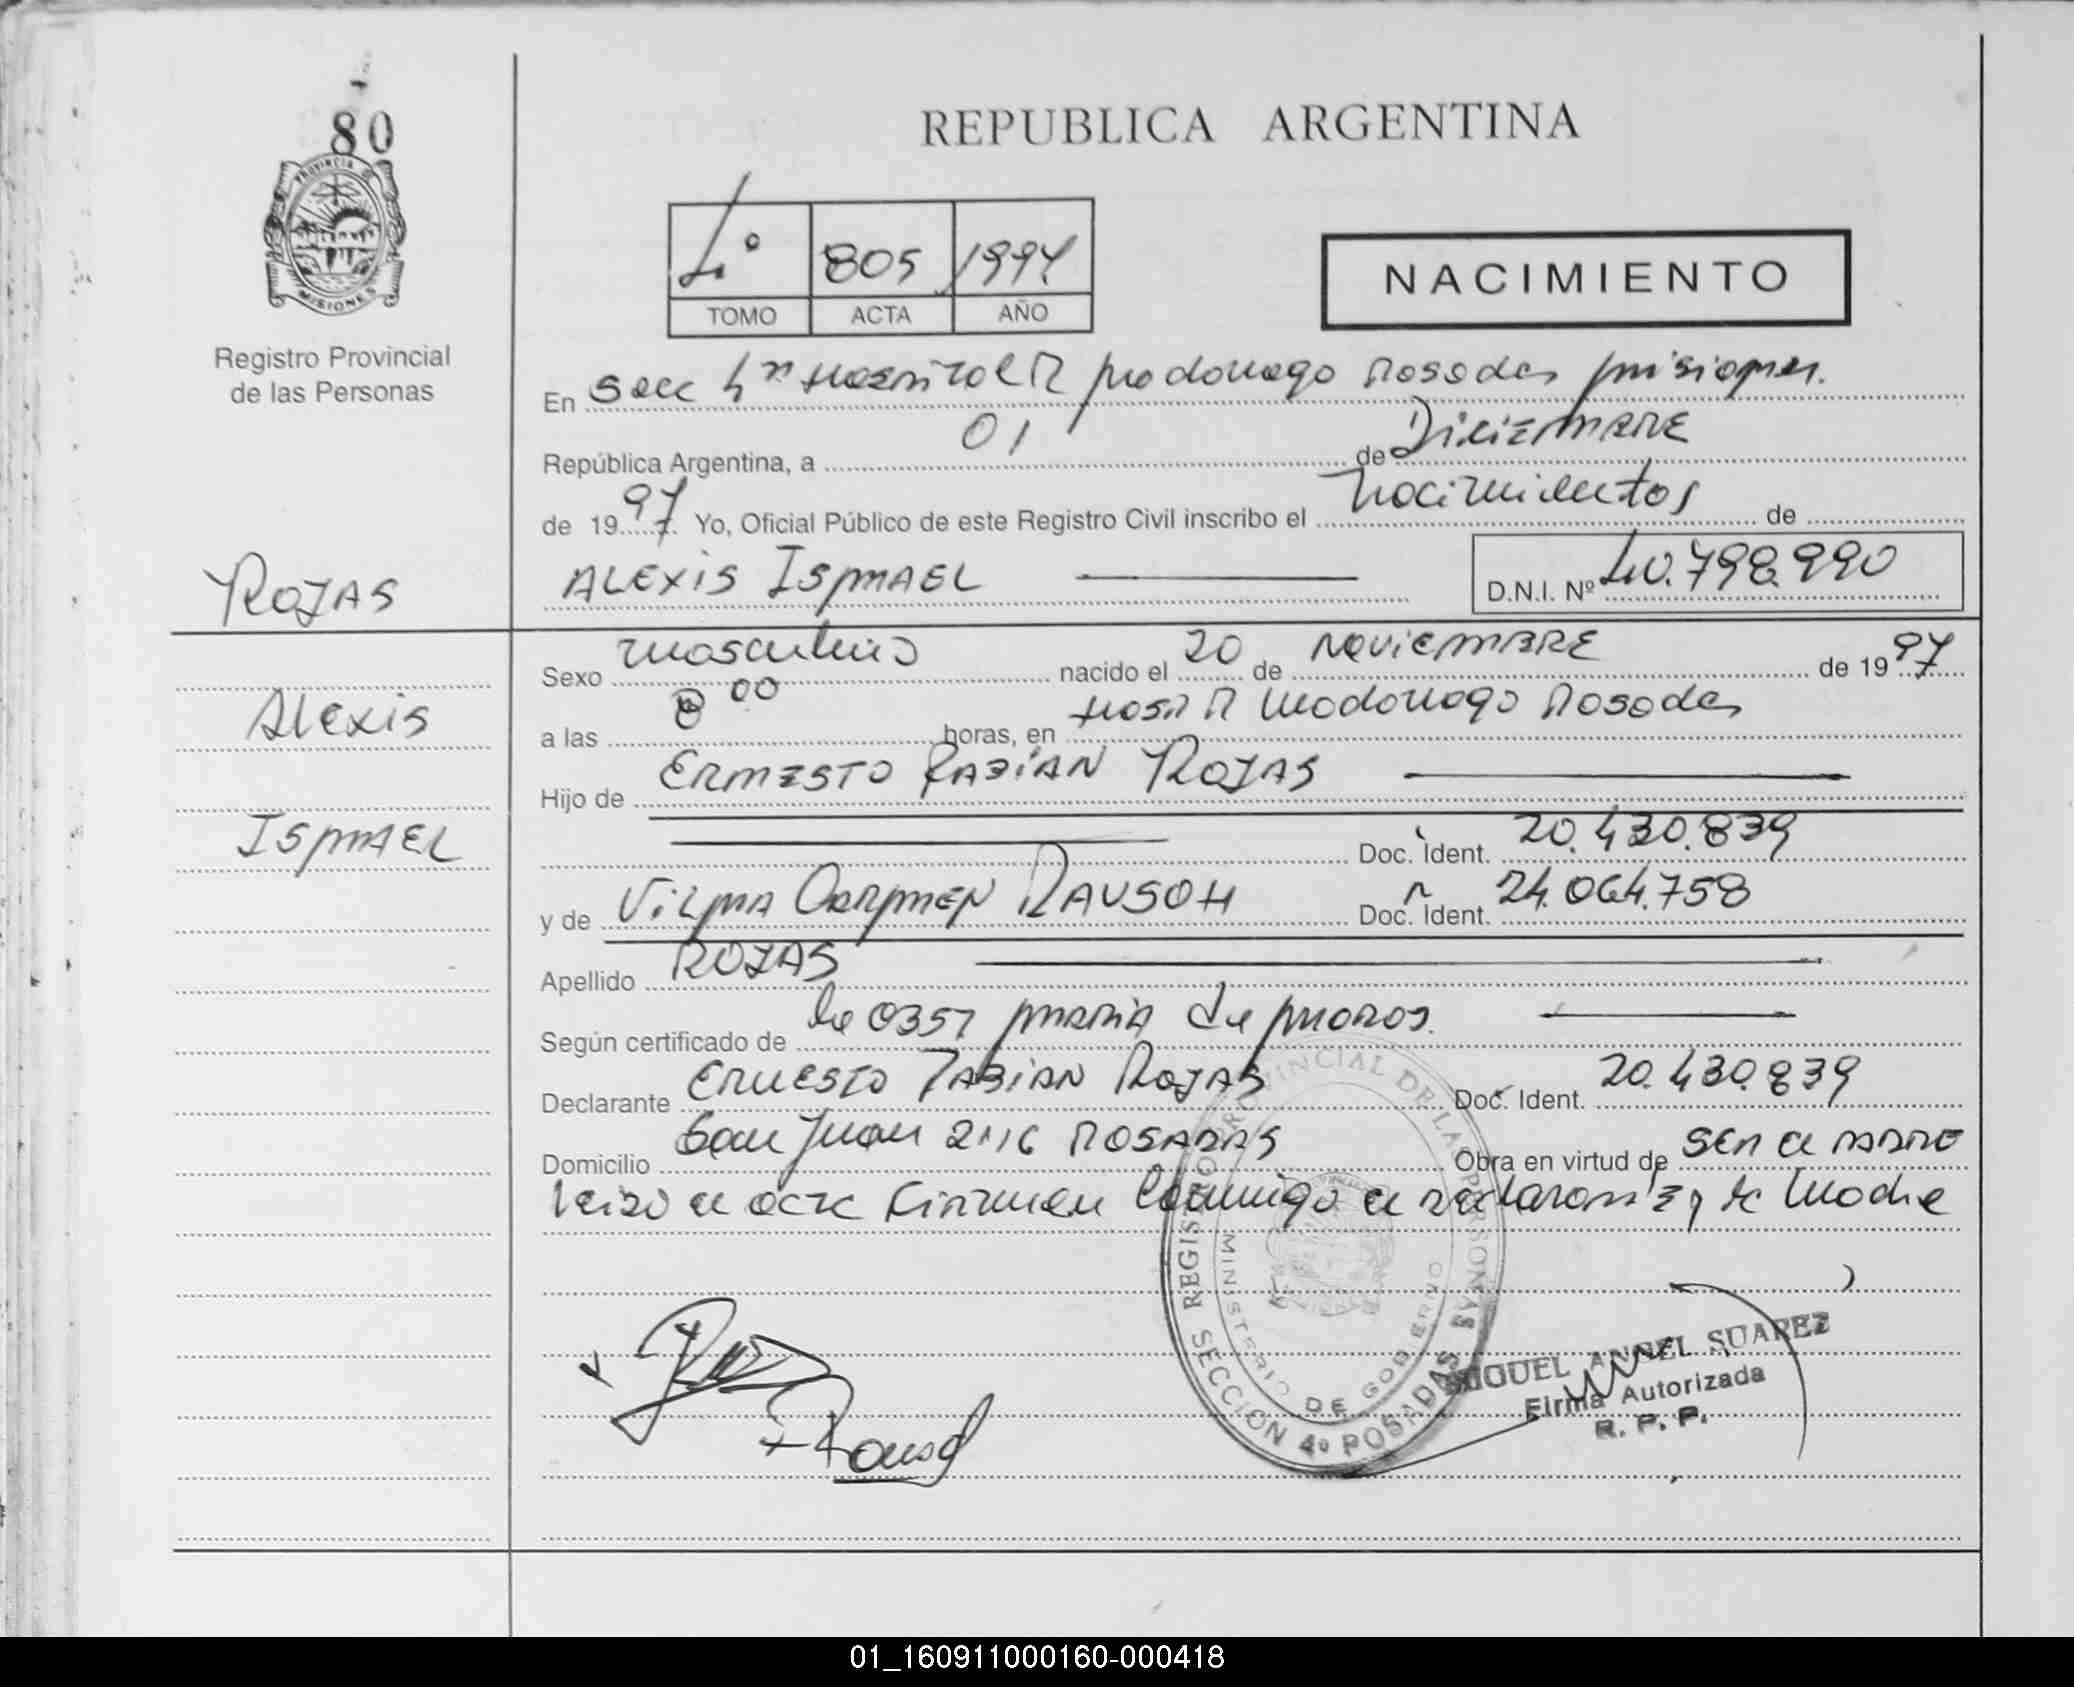 80
REPUBLICA ARGENTINA
PROVINCIA DE MISIONES
Registro Provincial
de las Personas
4º 805 1997
TOMO ACTA AÑO
NACIMIENTO
En Secc 4ª Hospital R Madariaga Posadas Misiones.
República Argentina, a 01 de Diciembre
de 1997. Yo, Oficial Público de este Registro Civil inscribo el Nacimientos de
ROJAS
ALEXIS ISMAEL D.N.I. Nº 40.798.990
Sexo masculino nacido el 20 de NOVIEMBRE de 1997
Alexis
a las 8 00 horas, en Hosp R Madariaga Posadas
Hijo de ERNESTO FABIAN ROJAS
ISMAEL
Doc. Ident. 20.430.839
y de VILMA CARMEN RAUSCH Doc. Ident. 24.064.758
Apellido ROJAS
Según certificado de 0357 MARIA de
Declarante ERNESTO FABIAN ROJAS Doc. Ident. 20.430.839
Domicilio San Juan 2116 POSADAS Obra en virtud de SER el PADRE
Leida el acta Firman Conmigo el declarante y la Madre
REGISTRO PROVINCIAL DE LAS PERSONAS
MINISTERIO DE GOBIERNO
SECCION 4º POSADAS
MIGUEL ANGEL SUAREZ
Firma Autorizada
R. P. P.
01_160911000160-000418